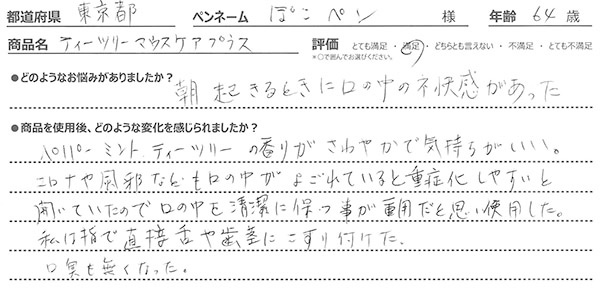 都道府県 東京都 ペンネーム ぽにペン 様 年齢 64 歳
商品名 ティーツリーマウスケアプラス 評価 とても満足 ・ 満足 ・ どちらとも言えない ・ 不満足 ・ とても不満足
*○で囲んでお選びください。
●どのようなお悩みがありましたか?
朝起きるときに口の中の不快感があった
●商品を使用後、どのような変化を感じられましたか?
ペパーミント、ティーツリーの香りがさわやかで気持ちがいい。
コロナや風邪なども口の中がよごれていると重症化しやすいと
聞いていたので口の中を清潔に保つ事が重用だと思い使用した。
私は指で直接舌や歯茎にこすり付けた。
口臭も無くなった。